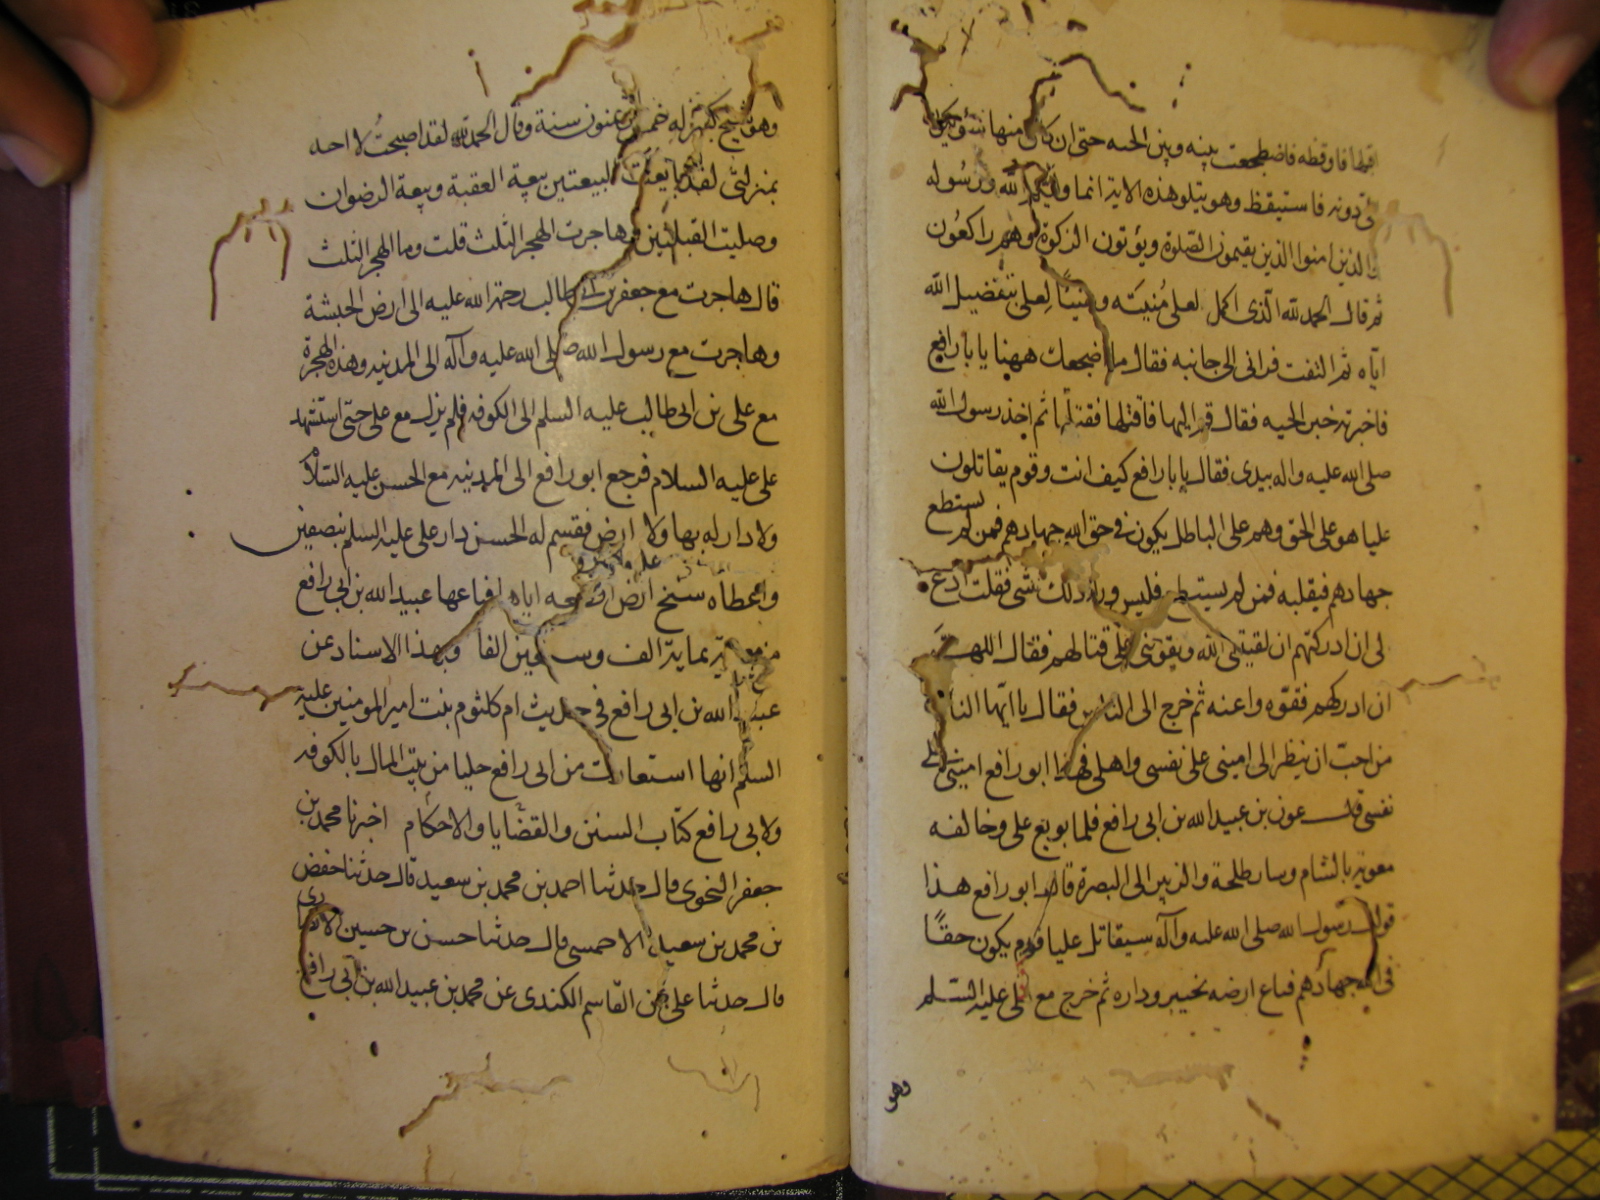 اقتلها فاوقظه فاضطجعت بينه وبين الحيه حتى ان كان منها شئ يكون
لى دونه فاستيقظ وهو يتلو هذه الاية انما وليكم الله ورسوله
والذين امنوا الذين يقيمون الصلوة ويؤتون الزكوة وهم راكعون
ثم قال الحمد لله الذى اكمل لعلى مُنيَته وهنيئًا لعلى بتفضيل الله
ايّاه ثم التفت فرانى الى جانبه فقال ما اضجعك ههنا يا با رافع
فاخبرته خبر الحيه فقال قم اليها فاقتلها فقتلتها ثم اخذ رسول الله
صلى الله عليه واله بيدى فقال يا با رافع كيف انت وقوم يقاتلون
عليا هو على الحق وهم على الباطل يكون فى حق الله جهادهم فمن لم يستطع
جهادهم فبقلبه فمن لم يستطع فليس وراء ذلك شى فقلت ادع
لى ان ادركتهم ان الله ويقوينى على قتالهم فقال اللهم
ان ادركهم فقوّه واعنه ثم خرج الى الناس فقال يا ايّها الناس
من احبّ ان ينظر الى امينى على نفسى واهلى فهذا ابو رافع امينى على
نفسى قال عون بن عبيد الله بن ابى رافع فلما بويع على وخالفه
معوية بالشام وسار طلحة والزبير الى البصرة قال ابو رافع هذا
قول رسول الله صلى الله عليه وآله سيقاتل عليا قوم يكون حقًا
فى الله جهادهم فباع ارضه بخيبر وداره ثم خرج مع على عليه السّلم
وهو
وهو شيخ كبير له خمس وثمنون سنة وقال الحمد لله لقد اصبحتُ لا احد
بمنزلتى لقد بايعت البيعتين بيعة العقبة وبيعة الرضوان
وصليت القبلتين وهاجرت الهجر الثلث قلت وما الهجر الثلث
قال هاجرت مع جعفر بن ابى طالب رحمة الله عليه الى ارض الحبشة
وهاجرت مع رسول الله صلى الله عليه وآله الى المدينه وهذه الهجرة
مع على بن ابى طالب عليه السلم الى الكوفه فلم يزل مع على حتى استشهد
على عليه السلام فرجع ابو رافع الى المدينه مع الحسن عليه السّلام
ولا دار له بها ولا ارض فقسم له الحسن دار على عليه السلم بنصفين
واعطاه سنخ ارض اقطعه اياه فباعها عبيد الله بن ابى رافع
من معوية بماية الف وسبعين الفا وبهذا الاسناد عن
عبيد الله بن ابى رافع فى حديث ام كلثوم بنت امير المومنين عليه
السلم انها استعارت من ابى رافع حليا من بيت المال بالكوفه
ولابى رافع كتاب السنن والقضايا والاحكام اخبرنا محمد بن
جعفر النحوى قال حدثنا احمد بن محمد بن سعيد قال حدثنا حفص
بن محمد بن سعيد الاحمسى قال حدثنا حسن بن حسين الانصارى
قال حدثنا على بن القاسم الكندى عن محمد بن عبيد الله بن ابى رافع